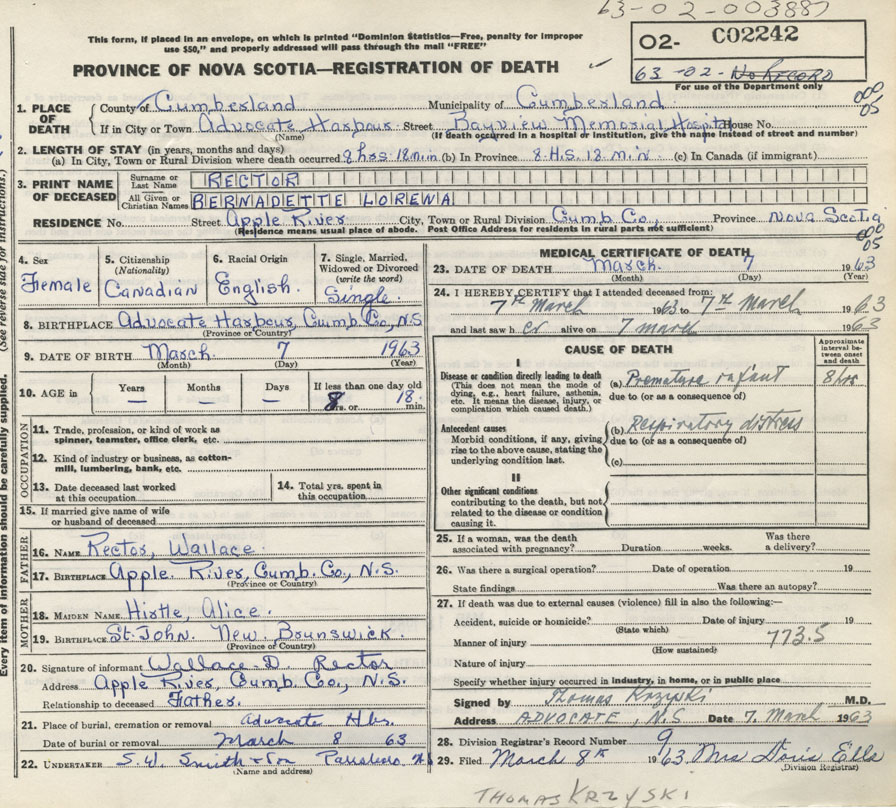 63-02-003887
This form, if placed in an envelope, on which is printed "Dominion Statistics—Free, penalty for improper
use $50," and properly addressed will pass through the mail "FREE"
PROVINCE OF NOVA SCOTIA—REGISTRATION OF DEATH
02- C02242
63-02- No Record
For use of the Department only
000
05
1. PLACE OF DEATH
County of Cumberland Municipality of Cumberland
If in City or Town Advocate Harbour Street Bayview Memorial Hospital House No.
(Name) (If death occurred in a hospital or institution, give the name instead of street and number)
2. LENGTH OF STAY (in years, months and days)
(a) In City, Town or Rural Division where death occurred 8 hrs 18 min (b) In Province 8 H.S. 18 min (c) In Canada (if immigrant)
3. PRINT NAME OF DECEASED
Surname or Last Name RECTOR
All Given or Christian Names BERNADETTE LORENA
RESIDENCE No. Street Apple River City, Town or Rural Division Cumb Co., Province Nova Scotia
(Residence means usual place of abode. Post Office Address for residents in rural parts not sufficient)
000
05
4. Sex Female
5. Citizenship (Nationality) Canadian
6. Racial Origin English.
7. Single, Married, Widowed or Divorced (write the word) Single.
8. BIRTHPLACE Advocate Harbour, Cumb. Co., N.S
(Province or Country)
9. DATE OF BIRTH March 7 1963
(Month) (Day) (Year)
10. AGE in Years — Months Days — If less than one day old 8 hrs. or 18 min.
OCCUPATION
11. Trade, profession, or kind of work as spinner, teamster, office clerk, etc.
12. Kind of industry or business, as cotton-mill, lumbering, bank, etc.
13. Date deceased last worked at this occupation
14. Total yrs. spent in this occupation
15. If married give name of wife or husband of deceased
FATHER
16. NAME Rector, Wallace.
17. BIRTHPLACE Apple River, Cumb. Co., N.S.
(Province or Country)
MOTHER
18. MAIDEN NAME Hirtle, Alice.
19. BIRTHPLACE St. John New Brunswick.
(Province or Country)
20. Signature of informant Wallace D. Rector
Address Apple River, Cumb. Co., N.S.
Relationship to deceased Father.
21. Place of burial, cremation or removal Advocate Hbr.
Date of burial or removal March 8 63
22. UNDERTAKER S.W. Smith & Son Parrsboro N.S
(Name and address)
MEDICAL CERTIFICATE OF DEATH
23. DATE OF DEATH March. 7 1963
(Month) (Day) (Year)
24. I HEREBY CERTIFY that I attended deceased from:
7th March 1963 to 7th March 1963
and last saw h er alive on 7 march 1963
CAUSE OF DEATH
Approximate interval between onset and death
I
Disease or condition directly leading to death
(This does not mean the mode of dying, e.g., heart failure, asthenia, etc. It means the disease, injury, or complication which caused death.)
(a) Premature infant 8 hrs
due to (or as a consequence of)
Antecedent causes
Morbid conditions, if any, giving rise to the above cause, stating the underlying condition last.
(b) Respiratory distress
due to (or as a consequence of)
(c)
II
Other significant conditions
contributing to the death, but not related to the disease or condition causing it.
25. If a woman, was the death associated with pregnancy? Duration weeks. Was there a delivery?
26. Was there a surgical operation? Date of operation 19
State findings Was there an autopsy?
27. If death was due to external causes (violence) fill in also the following:—
Accident, suicide or homicide? Date of injury 19
(State which)
Manner of injury 773.5
(How sustained)
Nature of injury
Specify whether injury occurred in industry, in home, or in public place
Signed by Thomas Krzyski M.D.
Address ADVOCATE, N.S. Date 7. March 1963
28. Division Registrar's Record Number 9
29. Filed March 8th 1963 Mrs Doris Ells
(Division Registrar)
THOMAS KRZYSKI
Every item of information should be carefully supplied. (See reverse side for instructions.)